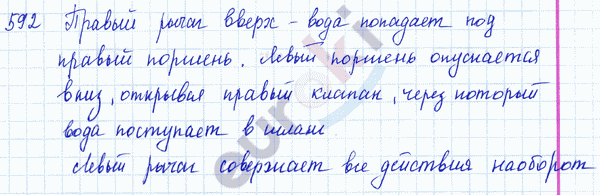 592 Правый рычаг вверх - вода попадает под
правый поршень. Левый поршень опускается
вниз, открывая правый клапан, через который
вода поступает в шланг
Левый рычаг совершает все действия наоборот
euroki